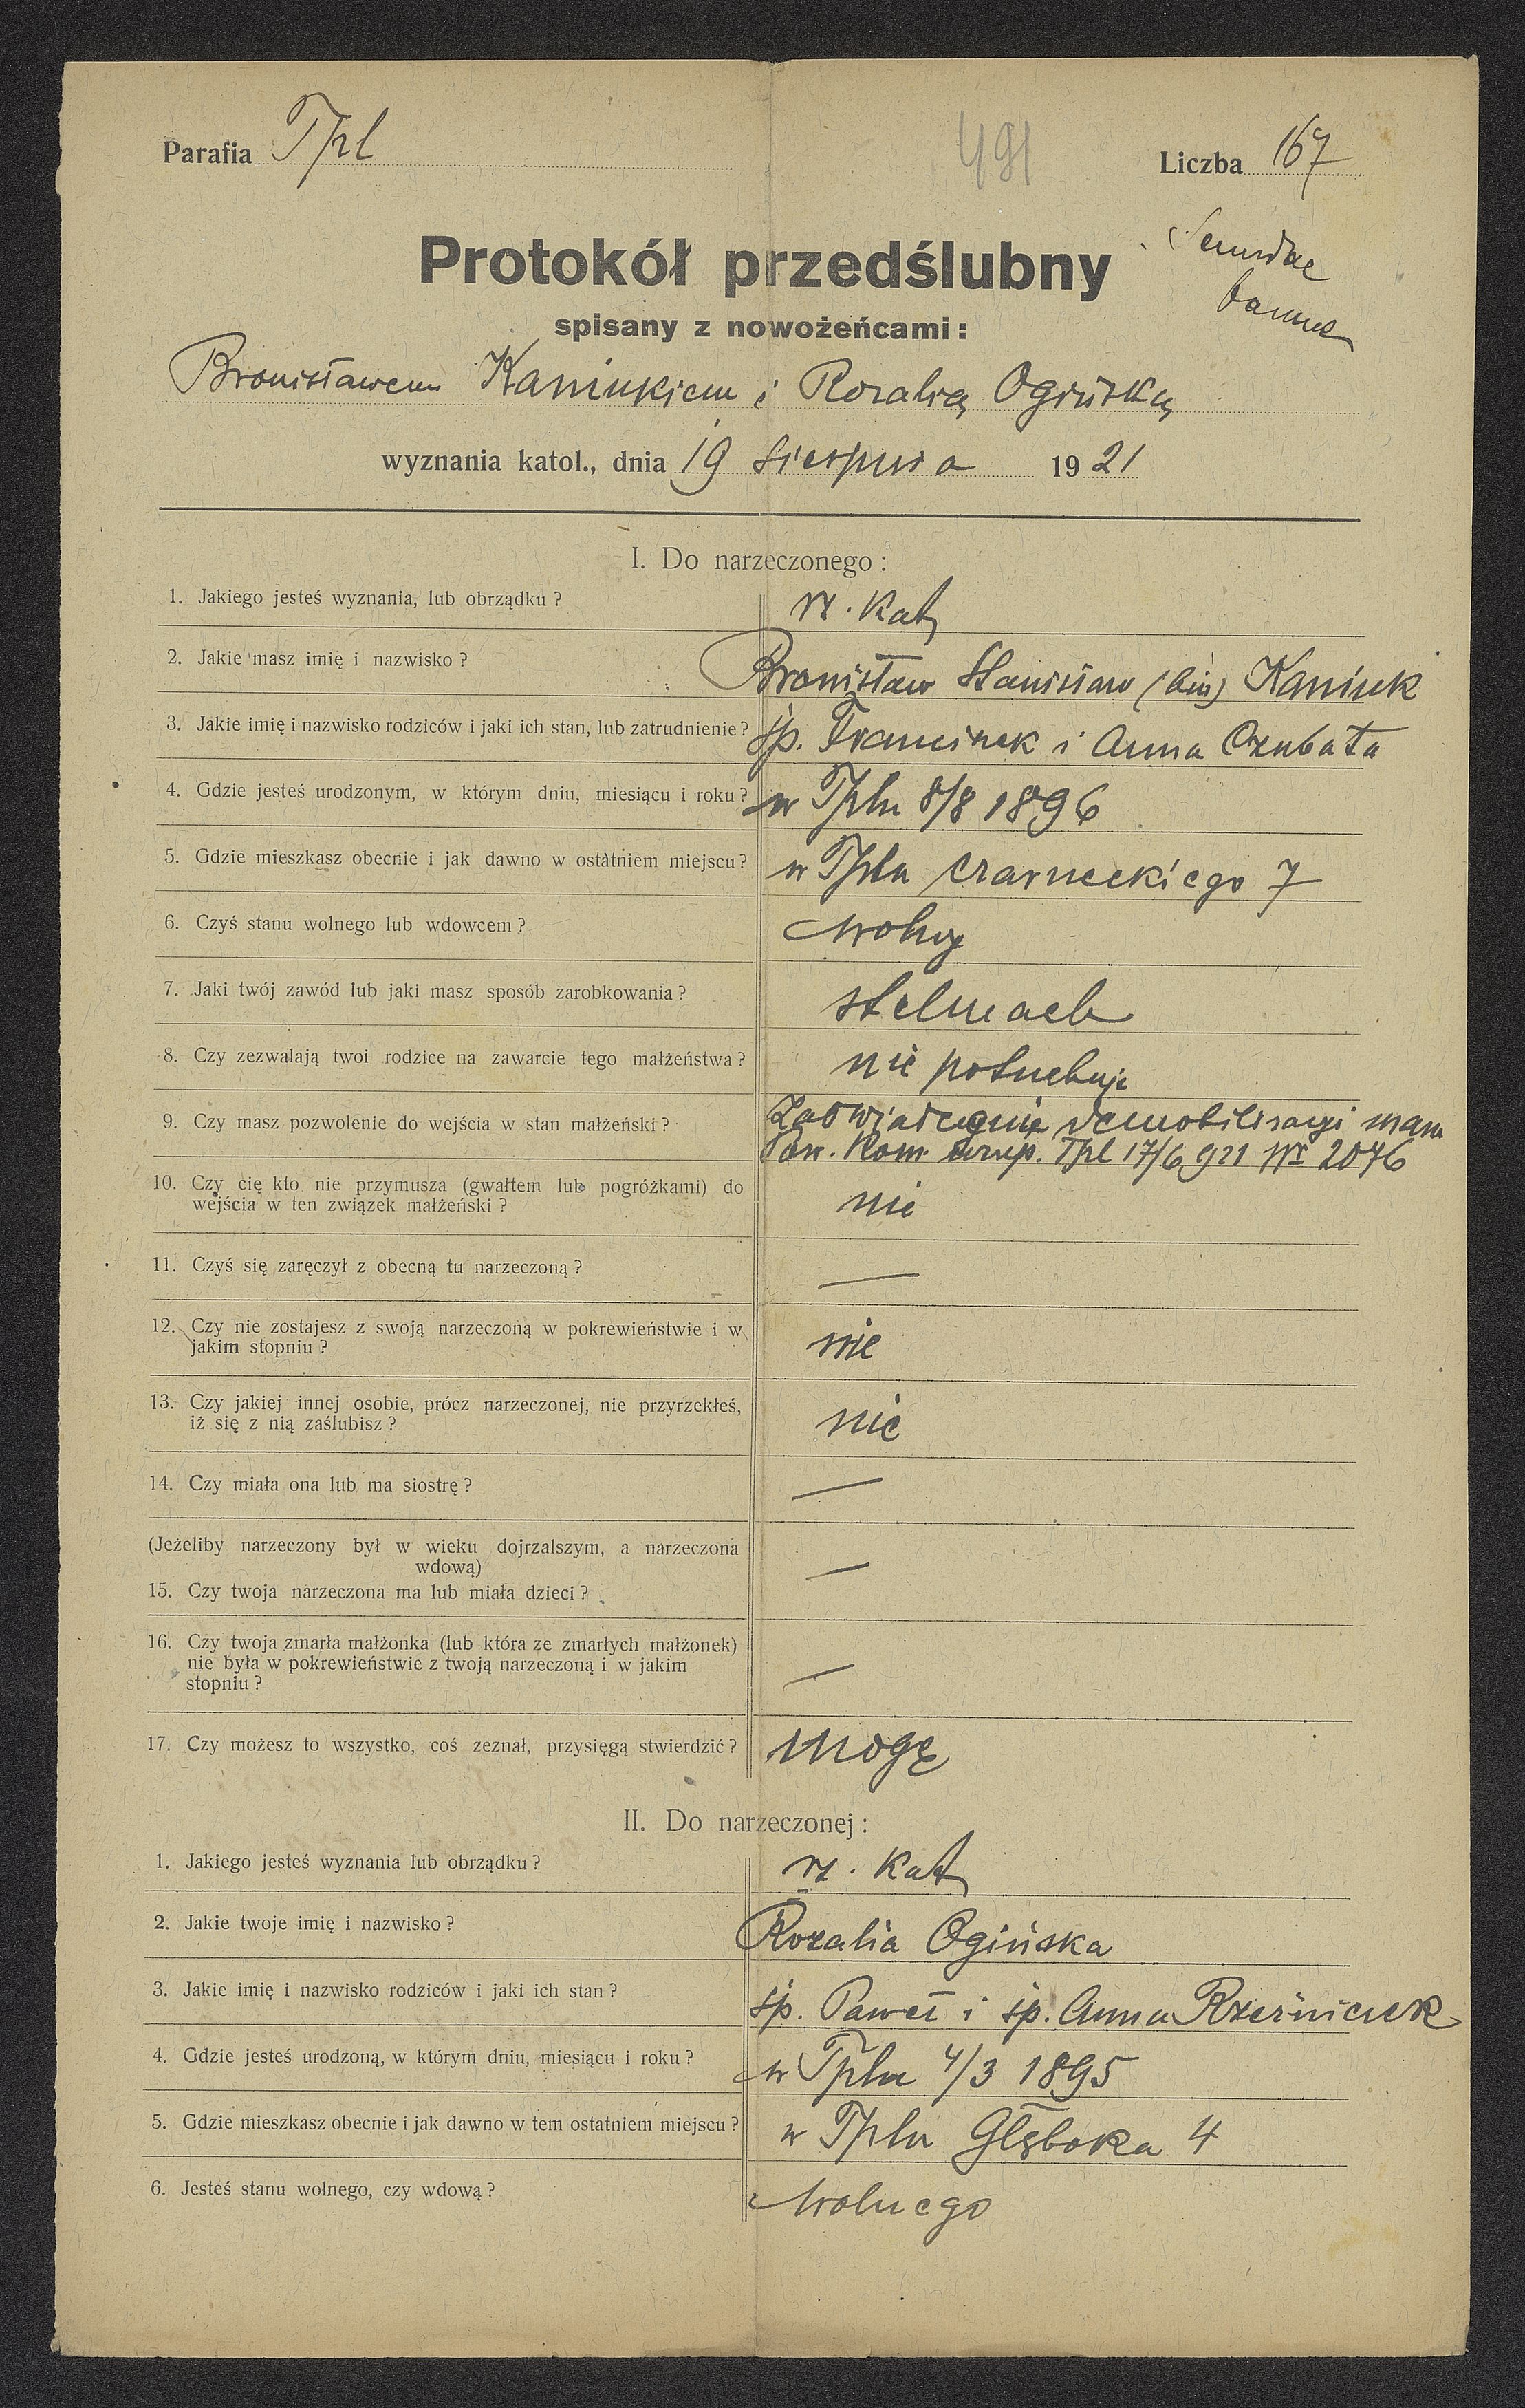 Parafia Tpl
491
Liczba 167
Protokół przedślubny
spisany z nowożeńcami:
Bronisławem Kaniukiem i Rozalią Ogińską
wyznania katol., dnia 19 sierpnia 1921
I. Do narzeczonego:
1. Jakiego jesteś wyznania, lub obrządku? rz. kat
2. Jakie masz imię i nazwisko? Bronisław Stanisław (bin) Kaniuk
3. Jakie imię i nazwisko rodziców i jaki ich stan, lub zatrudnienie? śp. Franciszek i Anna Czubata
4. Gdzie jesteś urodzonym, w którym dniu, miesiącu i roku? w Tplu 8/8 1896
5. Gdzie mieszkasz obecnie i jak dawno w ostatniem miejscu? w Tplu Czarneckiego 7
6. Czyś stanu wolnego lub wdowcem? wolny
7. Jaki twój zawód lub jaki masz sposób zarobkowania? stelmach
8. Czy zezwalają twoi rodzice na zawarcie tego małżeństwa? nie potrzebuje
9. Czy masz pozwolenie do wejścia w stan małżeński? Zaświadczenie demobilizacyi mam
Pow. Kom. uzup. Tpl 17/6 921 Nr 2076
10. Czy cię kto nie przymusza (gwałtem lub pogróżkami) do
wejścia w ten związek małżeński? nie
11. Czyś się zaręczył z obecną tu narzeczoną? —
12. Czy nie zostajesz z swoją narzeczoną w pokrewieństwie i w
jakim stopniu? nie
13. Czy jakiej innej osobie, prócz narzeczonej, nie przyrzekłeś,
iż się z nią zaślubisz? nie
14. Czy miała ona lub ma siostrę? —
(Jeżeliby narzeczony był w wieku dojrzalszym, a narzeczona
wdową) —
15. Czy twoja narzeczona ma lub miała dzieci?
16. Czy twoja zmarła małżonka (lub która ze zmarłych małżonek)
nie była w pokrewieństwie z twoją narzeczoną i w jakim
stopniu? —
17. Czy możesz to wszystko, coś zeznał, przysięgą stwierdzić? mogę
II. Do narzeczonej:
1. Jakiego jesteś wyznania lub obrządku? rz. kat
2. Jakie twoje imię i nazwisko? Rozalia Ogińska
3. Jakie imię i nazwisko rodziców i jaki ich stan? śp. Paweł i śp. Anna Rzeźniczek
4. Gdzie jesteś urodzoną, w którym dniu, miesiącu i roku? w Tplu 4/3 1895
5. Gdzie mieszkasz obecnie i jak dawno w tem ostatniem miejscu? w Tplu Głęboka 4
6. Jesteś stanu wolnego, czy wdową? wolnego